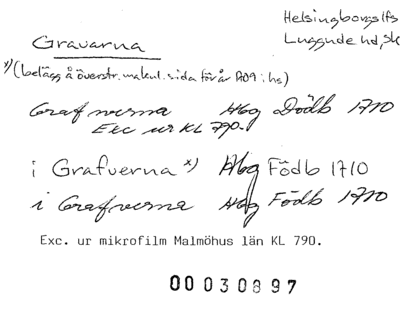 Helsingborgs lfs
Luggude hd, Sk
Gravarna
x) (belägg å överstr. makul. sida för år 1709 i hs)
Grafverna Hbg Dödb 1710
Exc ur KL 790.
i Grafverna x) Hbg Födb 1710
i Grafverna Hbg Födb 1710
Exc. ur mikrofilm Malmöhus län KL 790.
00 030897